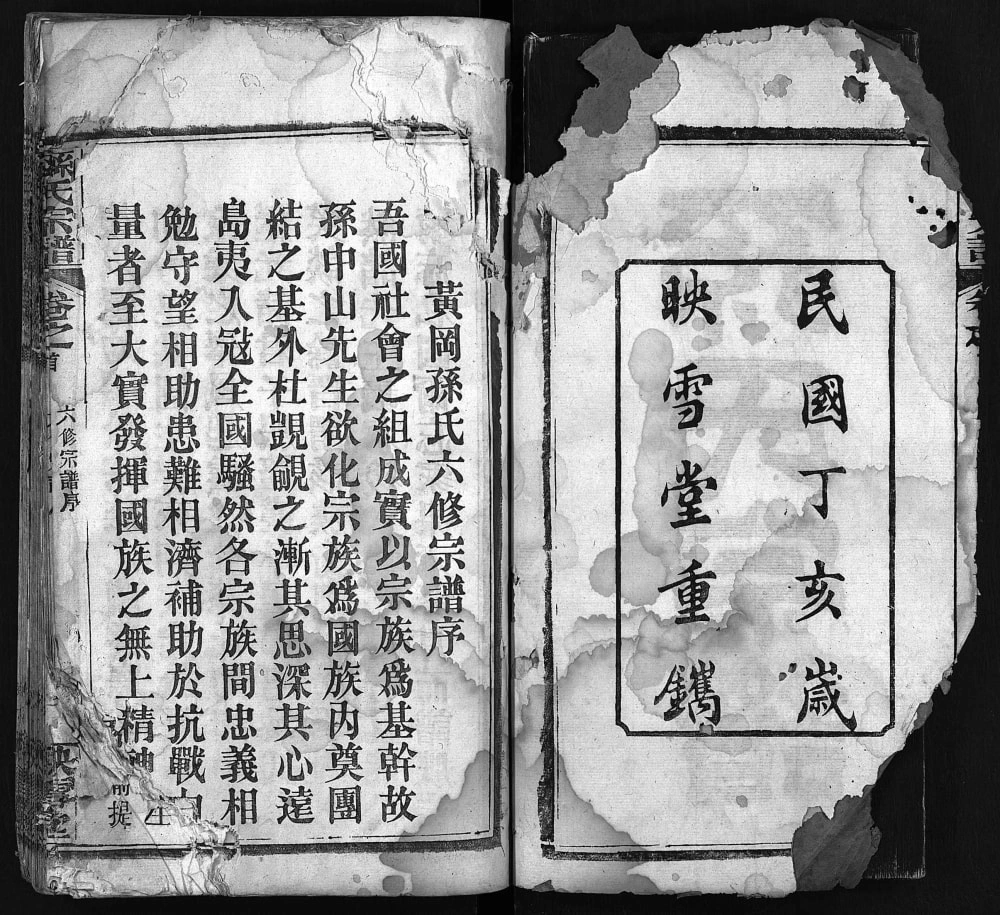 民國丁亥歲
映雪堂重鐫
黃岡孫氏六修宗譜序
吾國社會之組成實以宗族爲基幹故
孫中山先生欲化宗族爲國族內奠團
結之基外杜覬覦之漸其思深其心遠
島夷入寇全國騷然各宗族間忠義相
勉守望相助患難相濟補助於抗戰力
量者至大實發揮國族之無上精神
前提
孫氏宗譜
卷之首
六修宗譜序
映雪堂